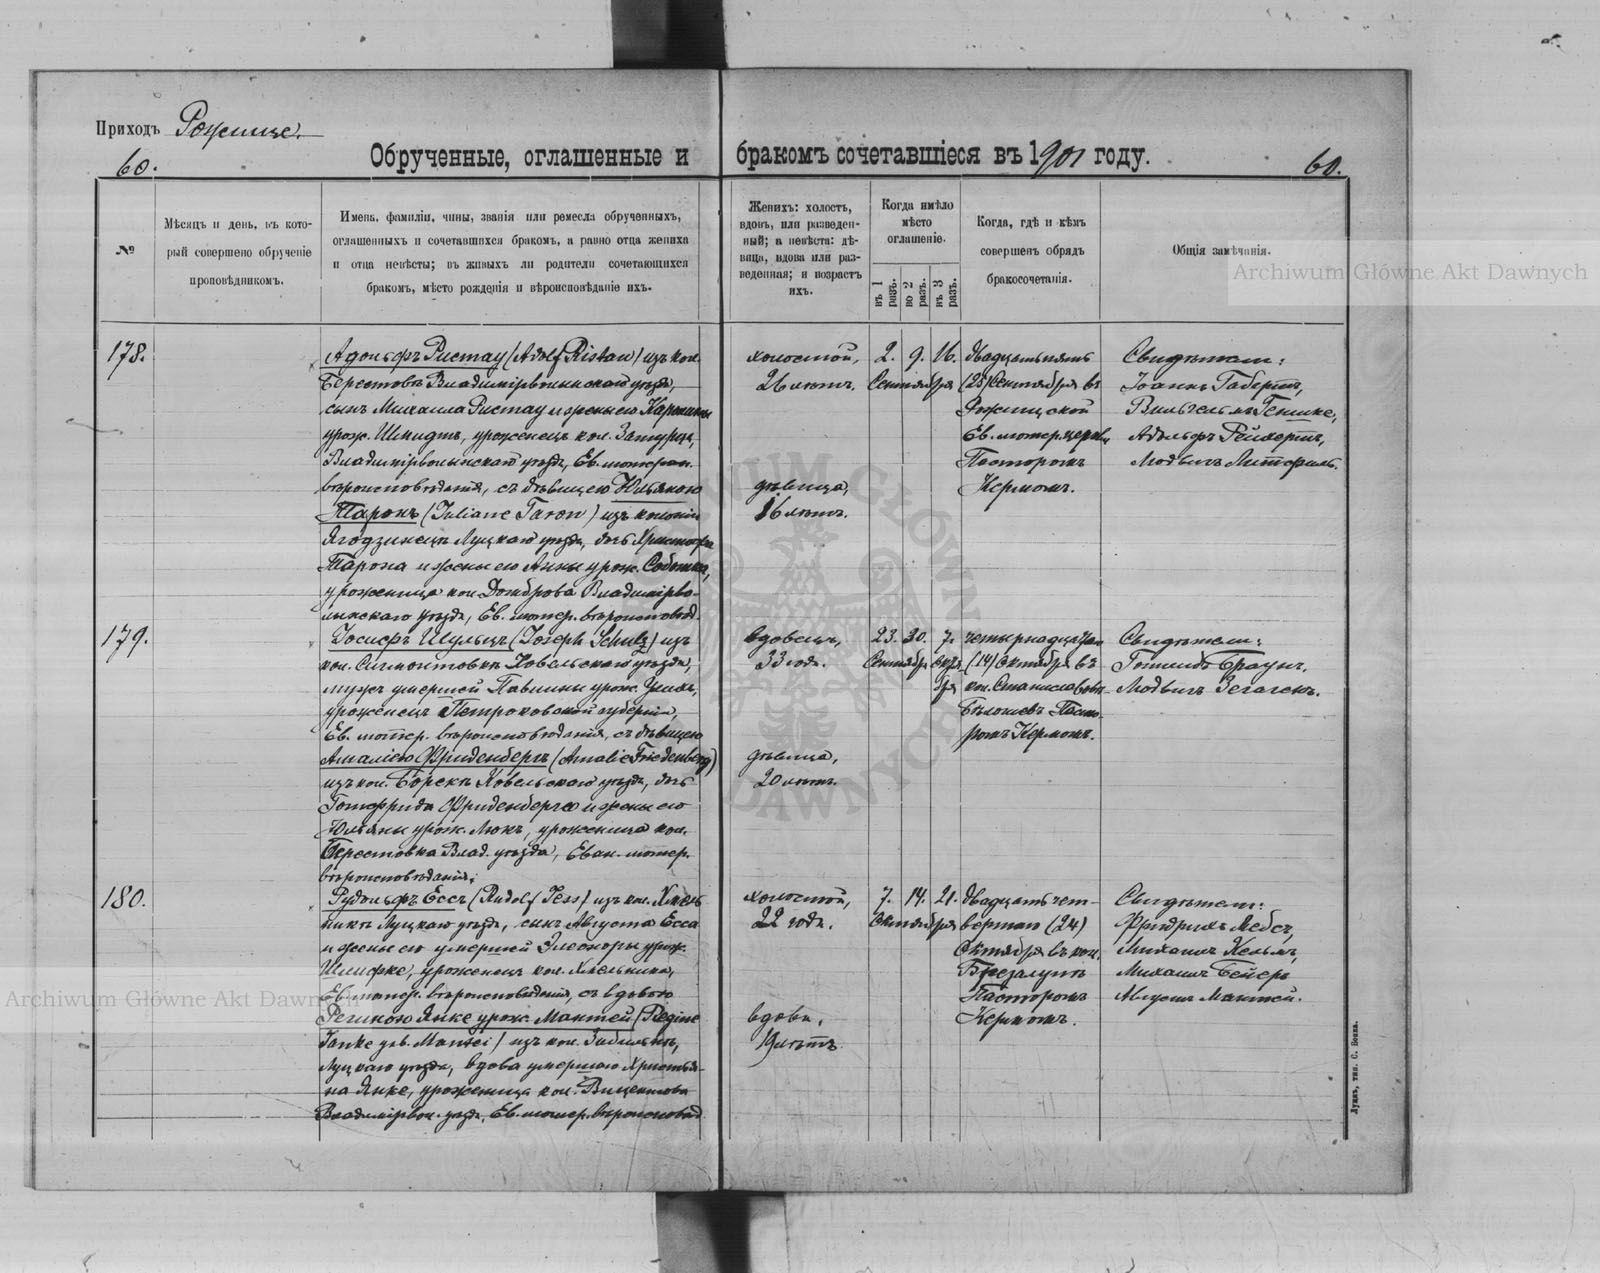 Приходъ Рожище.
60.
Обрученные, оглашенные и бракомъ сочетавшіеся въ 1901 году.
60.
№
Мѣсяцъ и день, въ кото-
рый совершено обрученіе
проповѣдникомъ.
Имена, фамиліи, чины, званія или ремесла обрученныхъ,
оглашенныхъ и сочетавшихся бракомъ, а равно отца жениха
и отца невѣсты; въ живыхъ ли родители сочетающихся
бракомъ, мѣсто рожденія и вѣроисповѣданіе ихъ.
Женихъ: холостъ,
вдовъ, или разведен-
ный; а невѣста: дѣ-
вица, вдова или раз-
веденная; и возрастъ
ихъ.
Когда имѣло
мѣсто
оглашеніе.
въ 1 разъ.
во 2 разъ.
въ 3 разъ.
Когда, гдѣ и кѣмъ
совершенъ обрядъ
бракосочетанія.
Общія замѣчанія.
Archiwum Główne Akt Dawnych
178.
Адольфъ Ристау (Adolf Ristau) изъ кол.
Берестовъ Владимірволынскаго уѣзда,
сынъ Михаила Ристау и жены его Каролины
урож. Шмидтъ, уроженецъ кол. Затурцы,
Владимірволынскаго уѣзда, Ев. лютеран.
вѣроисповѣданія, съ дѣвицею Юльяною
Таронъ (Juliane Taron) изъ колоніи
Ягодзинецъ Луцкаго уѣзда, дочь Христофа
Тарона и жены его Анны урож. Соботка,
уроженица кол. Домброва Владимірво-
лынскаго уѣзда, Ев. лютер. вѣроисповѣд.
холостой,
26 лѣтъ.
дѣвица,
16 лѣтъ.
2. 9. 16.
Сентября
двадцать пять
(25) Сентября въ
Рожищской
Ев. лютер. церкви
Пасторомъ
Кермомъ.
Свидѣтели:
Іоаннъ Габертъ,
Вильгельмъ Генике,
Адольфъ Рейхертъ,
Людвигъ
179.
Іосифъ Шульцъ (Joseph Schulz) изъ
кол. Сигмонтовка Ковельскаго уѣзда,
мужъ умершей Павлины урож.
уроженецъ Петроковской губерніи,
Ев. лютер. вѣроисповѣданія, съ дѣвицею
Амаліею Фриденбергъ (Amalie Friedenberg)
изъ кол. Борекъ Ковельскаго уѣзда, дочь
Готфрида Фриденберга и жены его
Юльяны урож. Люкъ, уроженица кол.
Берестовка Влад. уѣзда, Еван. лютер.
вѣроисповѣданія.
вдовецъ,
33 года.
дѣвица,
20 лѣтъ.
23. 30. 7.
Сентября Октя-
бря
четырнадцатаго
(14) Октября въ
кол. Станиславовъ-
Бѣлошевъ Пасто-
ромъ Кермомъ.
Свидѣтели:
Готлибъ Браунъ,
Людвигъ
180.
Рудольфъ Ессъ (Rudolf Jess) изъ кол. Хмѣль-
никъ Луцкаго уѣзда, сынъ Августа Есса
и жены его умершей Элеоноры урож.
Шлифке, уроженецъ кол. Хмельника,
Ев. лютер. вѣроисповѣданія, съ вдовою
Региною Янке урож. Мантей (Regine
Janke geb. Mantei) изъ кол. Забилыть,
Луцкаго уѣзда, вдова умершаго Христья-
на Янке, уроженица кол. Вицентова
Владимірвол. уѣзда, Ев. лютер. вѣроисповѣд.
холостой,
22 года.
вдова,
19 лѣтъ.
7. 14. 21.
Октября
двадцать чет-
вертаго (24)
Октября въ кол.
Брезалупъ
Пасторомъ
Кермомъ.
Свидѣтели:
Фридрихъ Мебсъ,
Михаилъ Кельмъ,
Михаилъ Бейеръ
Августъ Мантей.
Archiwum Główne Akt Dawnych
Луцкъ, тип. С. Бонка.